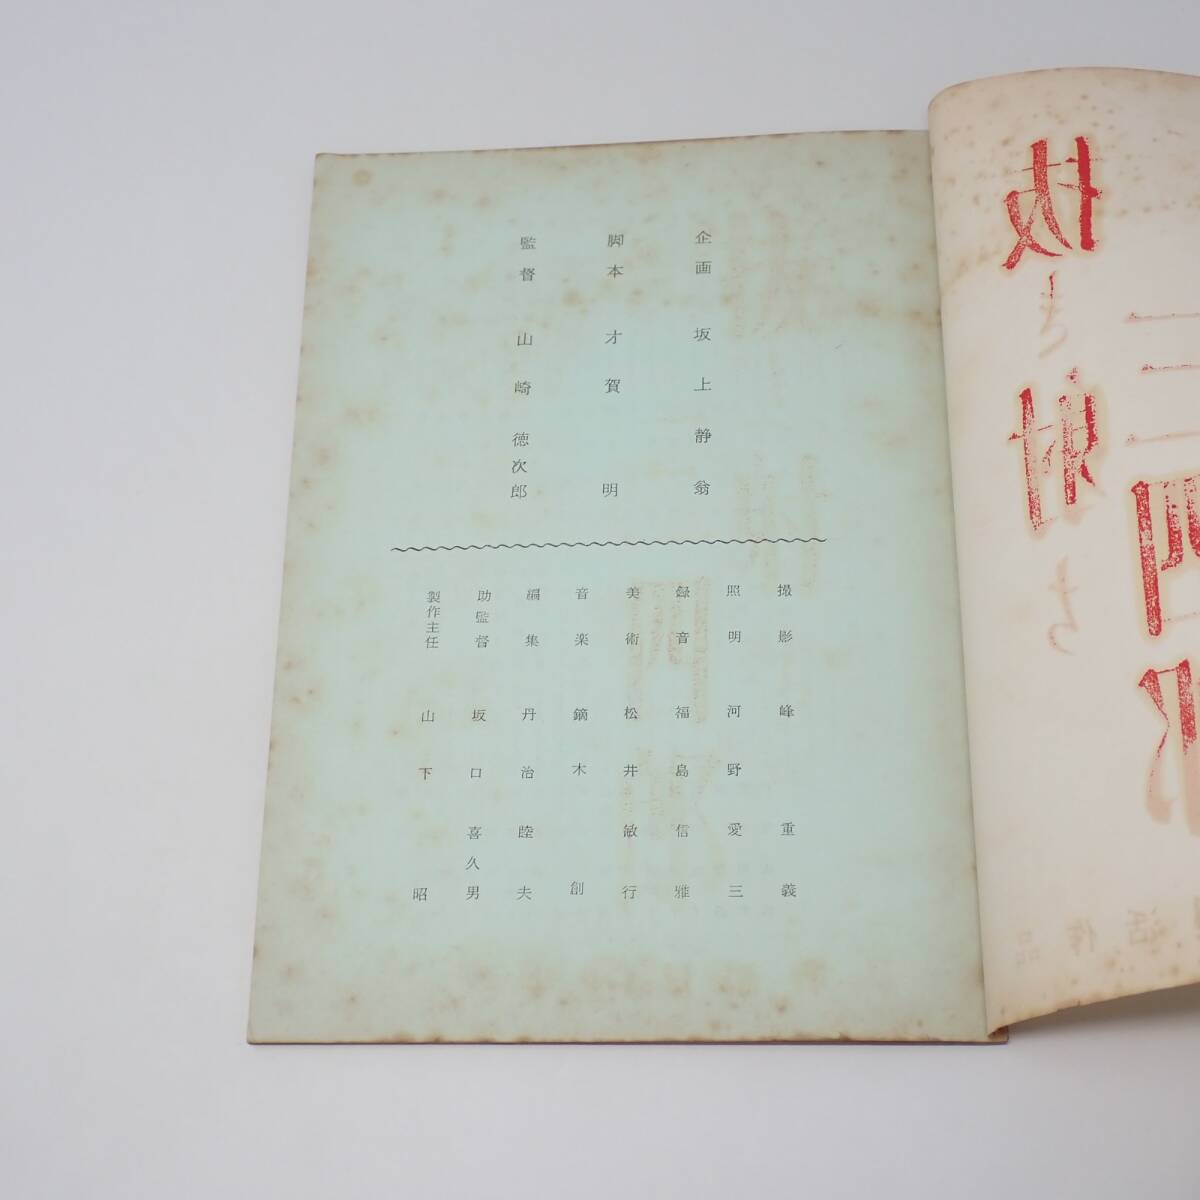 企画 坂上静翁
脚本 才賀明
監督 山崎徳次郎
撮影 峰重義
照明 河野愛三
録音 福島信雅
美術 松井敏行
音楽 鏑木創
編集 丹治睦夫
助監督 坂口喜久男
製作主任 山下昭
三四郎
抜き射ち
活作品